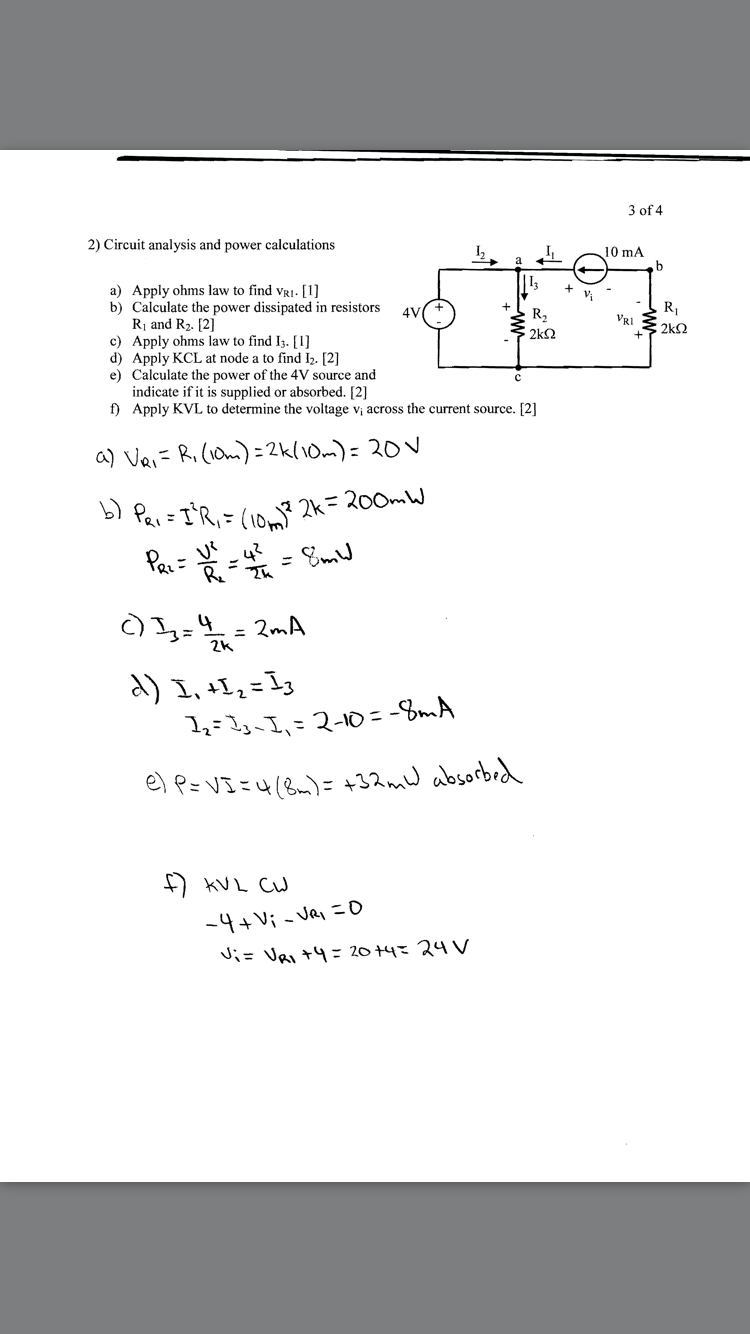 3 of 4
2) Circuit analysis and power calculations
a) Apply ohms law to find vR1. [1]
b) Calculate the power dissipated in resistors
R1 and R2. [2]
c) Apply ohms law to find I3. [1]
d) Apply KCL at node a to find I2. [2]
e) Calculate the power of the 4V source and
indicate if it is supplied or absorbed. [2]
f) Apply KVL to determine the voltage vi across the current source. [2]
I2
a
I1
10 mA
b
I3
+ vi -
4V
+
-
+
R2
2kΩ
-
-
vR1
+
R1
2kΩ
c
a) VR1 = R1(10m) = 2k(10m) = 20V
b) PR1 = I²R1 = (10m)² 2k = 200mW
PR2 = V²/R2 = 4²/2k = 8mW
c) I3 = 4/2k = 2mA
d) I1 + I2 = I3
I2 = I3 - I1 = 2-10 = -8mA
e) P = VI = 4(8m) = +32mW absorbed
f) KVL CW
-4 + Vi - VR1 = 0
Vi = VR1 + 4 = 20 + 4 = 24V